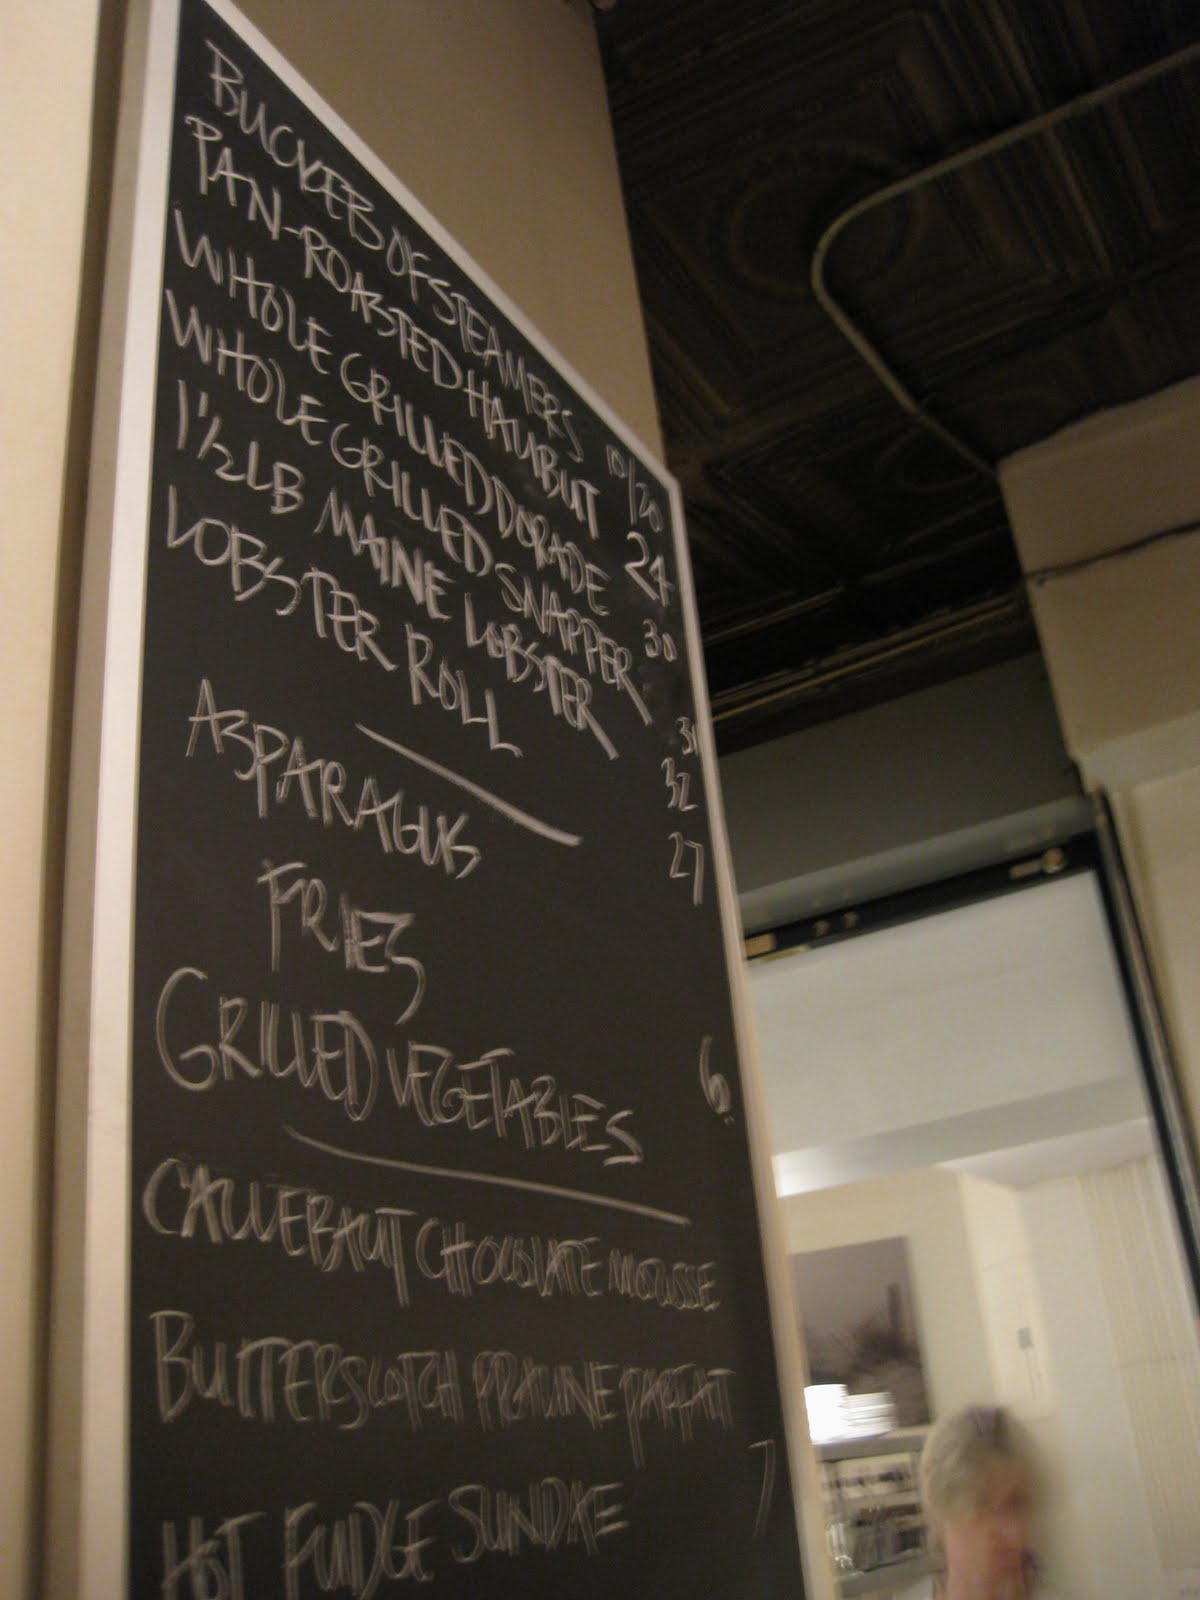 BUCKETS OF STEAMERS 10/20
PAN-ROASTED HALIBUT 24
WHOLE GRILLED DORADE 30
WHOLE GRILLED SNAPPER 31
1 1/2 LB MAINE LOBSTER 32
LOBSTER ROLL 27
ASPARAGUS
FRIES
GRILLED VEGETABLES 6
CALLEBAUT CHOCOLATE MOUSSE
BUTTERSCOTCH PRALINE PARFAIT
HOT FUDGE SUNDAE 7